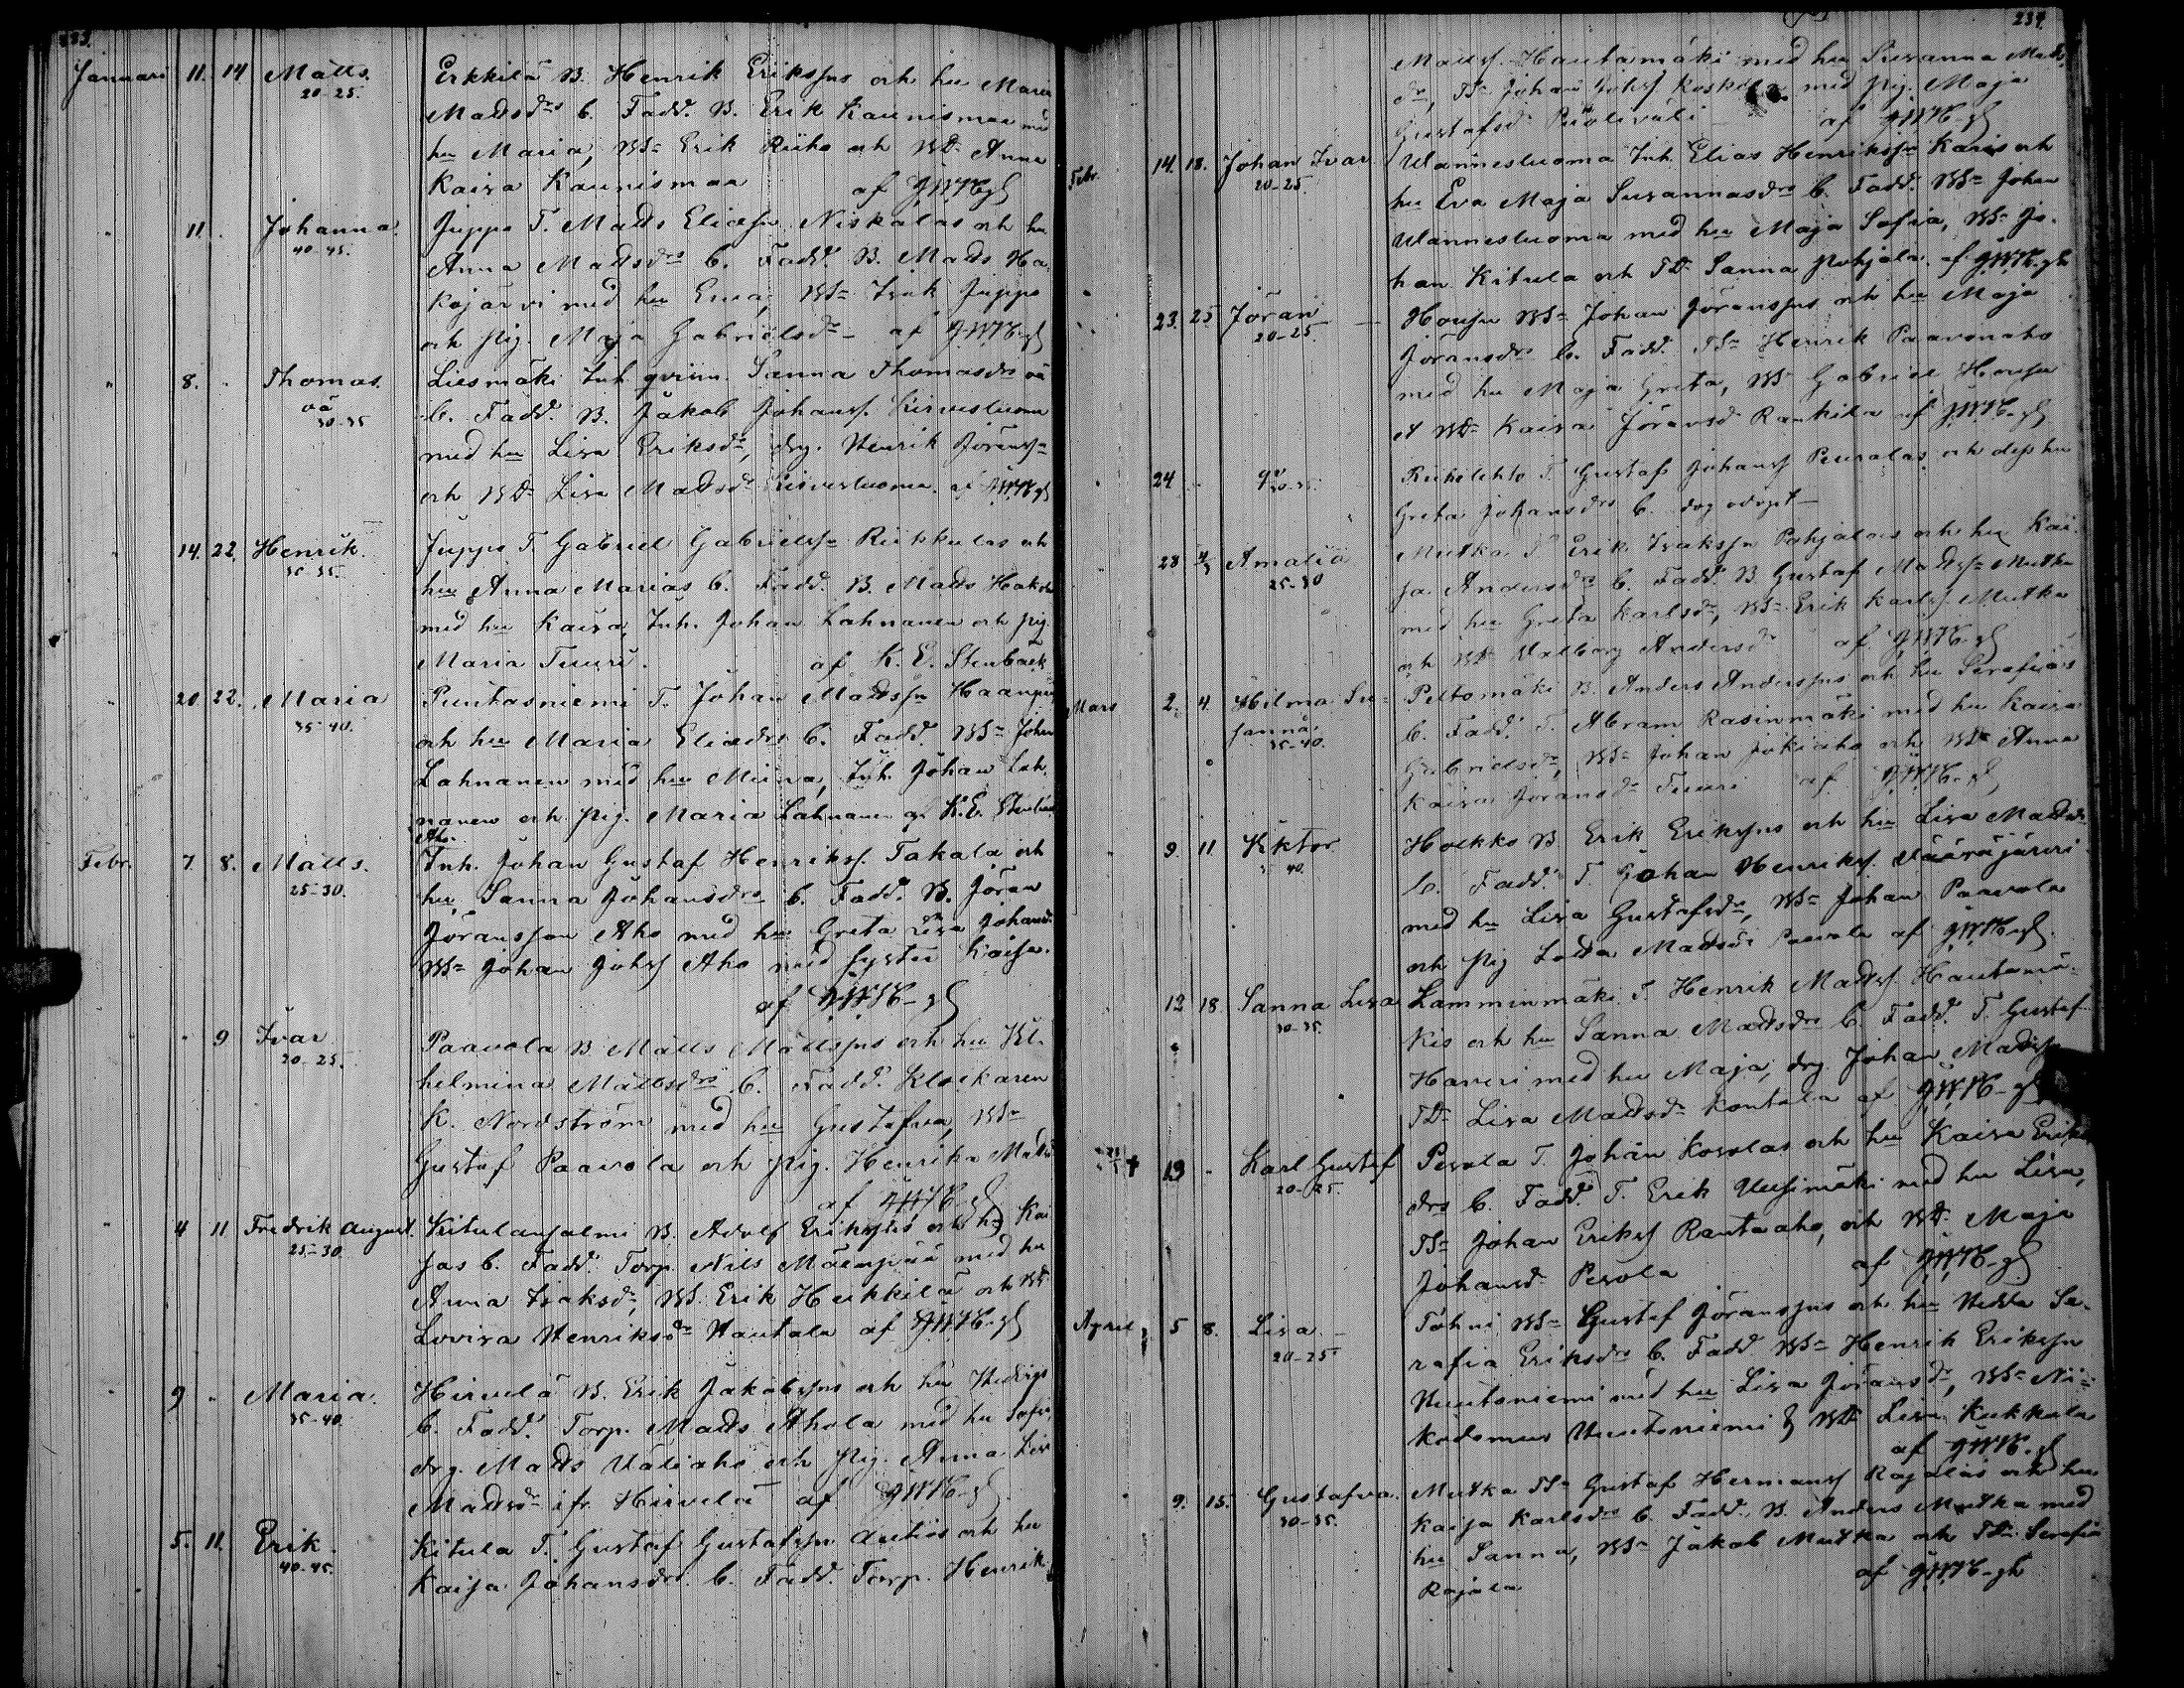 233.
Januari 11. 14 Matts. Erkkilä B. Henrik Erikssns och hu Maria
20-25. Madsdrs b. Fadd. B. Erik Kaunismaa med
hu Maria, BSn Erik Riiho och BDr Anna
Kaisa Kaunismaa af
" 11. " Johanna. Juppo T. Mads Eliassn Niskalas och hu
40-45. Anna Madsdrs b. Fadd. B. Mads Ha-
kojärvi med hu Eva, BSn Isak Juppo
och pig. Maja Gabrielsdr - af
" 8. " Thomas. Liesmäki Inh. qvinn. Sanna Thomasdrs oä
oä b. Fadd. B. Jakob Johanss. Hirvesluoma
30-35 med hu Lisa Eriksdr, drg. Henrik Jöranssn
och BDr Lisa Madsdr Hirvesluoma. af
" 14. 22. Henrik. Juppo T. Gabriel Gabrielssn Rukkulas och
30-35. hu Anna Marias b. Fadd. B. Mads
med hu Kaisa, Inh. Johan Lahnanen och pig.
Maria Tuuri. af K. E. Stenbäck
" 20. 22. Maria Puntasniemi T. Johan Madssn
35-40. och hu Maria Eliedrs b. Fadd. BSn Johan
Lahnanen med hu Miina, Inh. Johan Lah-
nanen och pig. Maria Lahnanen af K. E. Stenbäck
Aho.
Febr. 7. 8. Matts. Inh. Johan Gustaf Henrikss. Takala och
25-30. hu Sanna Johansdrs b. Fadd. B. Jöran
Jöransson Aho med hu Greta Lisa Johansd.
BSn Johan Johss Aho med syster Kaisa.
af
" 9 Ivar Paavola B. Matts Mattssns och hu Vil-
20-25. helmina Mattsdrs b. Fadd. Klockaren
K. Nordström med hu Gustafva, BSn
Gustaf Paavola och pig. Henrika
af
4 11 Fredrik August. Kitulansalmi B. Adolf Erikssns och hu Kai-
25-30. sas b. Fadd. Torp. Nils Mäenpää med hu
Anna Isaksdr, BS. Erik Heikkilä och BD.
Lovisa Henriksdr Hautala af
9 " Maria. Hirvelä B. Erik Jakobssns och hu Hedvigs
35-40. b. Fadd. Torp. Mads Ahola med hu Sofia,
drg. Mads Väliaho och pig. Anna Lisa
Madsdr ifr. Hirvelä af
5. 11. Erik. Kitula T. Gustaf Gustafssn Autios och hu
40-45. Kaisa Johansdrs b. Fadd. Torp. Henrik
234.
Madss. Hautamäki med hu Susanna Mads-
dr, TSn Johan Johss Koskela med pig. Maja
Gustafsdr Puoliväli af
Febr. 14. 18. Johan Ivar. Wannesluoma Inh. Elias Henrikssn Karis och
20-25. hu Eva Maja Susannasdrs b. Fadd. BSn Johan
Wannesluoma med hu Maja Sofia, BSn Jo-
han Kitula och TDr Sanna Pohjola. af
23. 25 Jöran BSn Johan Jöranssns och hu Maja
20-25. Jöransdrs b. Fadd. TSn Henrik Paavonaho
med hu Maja Greta, BS Gabriel
et BDr Kaisa Jöransd Rankila af
24 " T. Gustaf Johanss Peuralas och dess hu
Greta Johansdrs b. dog odöpt
28 Amalia Mutka T. Erik Isakssn Pohjolas och hu Kai-
25-30 sa Andersdrs b. Fadd. B. Gustaf Madssn Mutka
med hu Greta Karlsdr, BSn Erik Karlss. Mutka
och BDr Valborg Andersdr af
Mars 2. 4. Hilma Su- Peltomäki B. Anders Anderssns och hu Serafias
sanna b. Fadd. T. Abram Rasinmäki med hu Kaisa
35-40. Gabrielsdr, BSn Johan Jokiaho och BDr Anna
Kaisa Jöransdr Tuuri af
9. 11 Viktor Hokko B. Erik Erikssns och hu Lisa Madsdrs
40. b. Fadd. T. Johan Henrikss. Vääräjärvi
med hu Lisa Gustafsdr, BSn Johan Paavola
och pig Lotta Madsdr Paavola af
12 18. Sanna Lisa Lamminmäki T. Henrik Madss. Hautamä-
30-35. kis och hu Sanna Madsdrs b. Fadd. T. Gustaf
Haveri med hu Maja, drg. Johan Madss
TDr Lisa Madsdr Kontola af
+ 13 " Karl Gustaf Pesola T. Johan Kosolas och hu Kaisa Eriks-
20-25. drs b. Fadd. T. Erik Uusimäki med hu Lisa,
TSn Johan Erikss Rantaaho, och BD. Maja
Johansd. Pesola af
April 5 8. Lisa. Tohni BSn Gustaf Jöranssns och hu Hedda Se-
20-25 rafia Eriksdrs b. Fadd. BSn Henrik Erikssn
Huutoniemi med hu Lisa Jöransdr, BSn Ni-
kodemus Huutoniemi & BD Lisa Kukkola
af
9. 15. Gustafva. Mutka TSn Gustaf Hermanss Rajalas och hu
30-35. Kaisa Karlsdrs b. Fadd. B. Anders Mutka med
hu Sanna, BSn Jakob Mutka och TDr Serafia
Rajala af